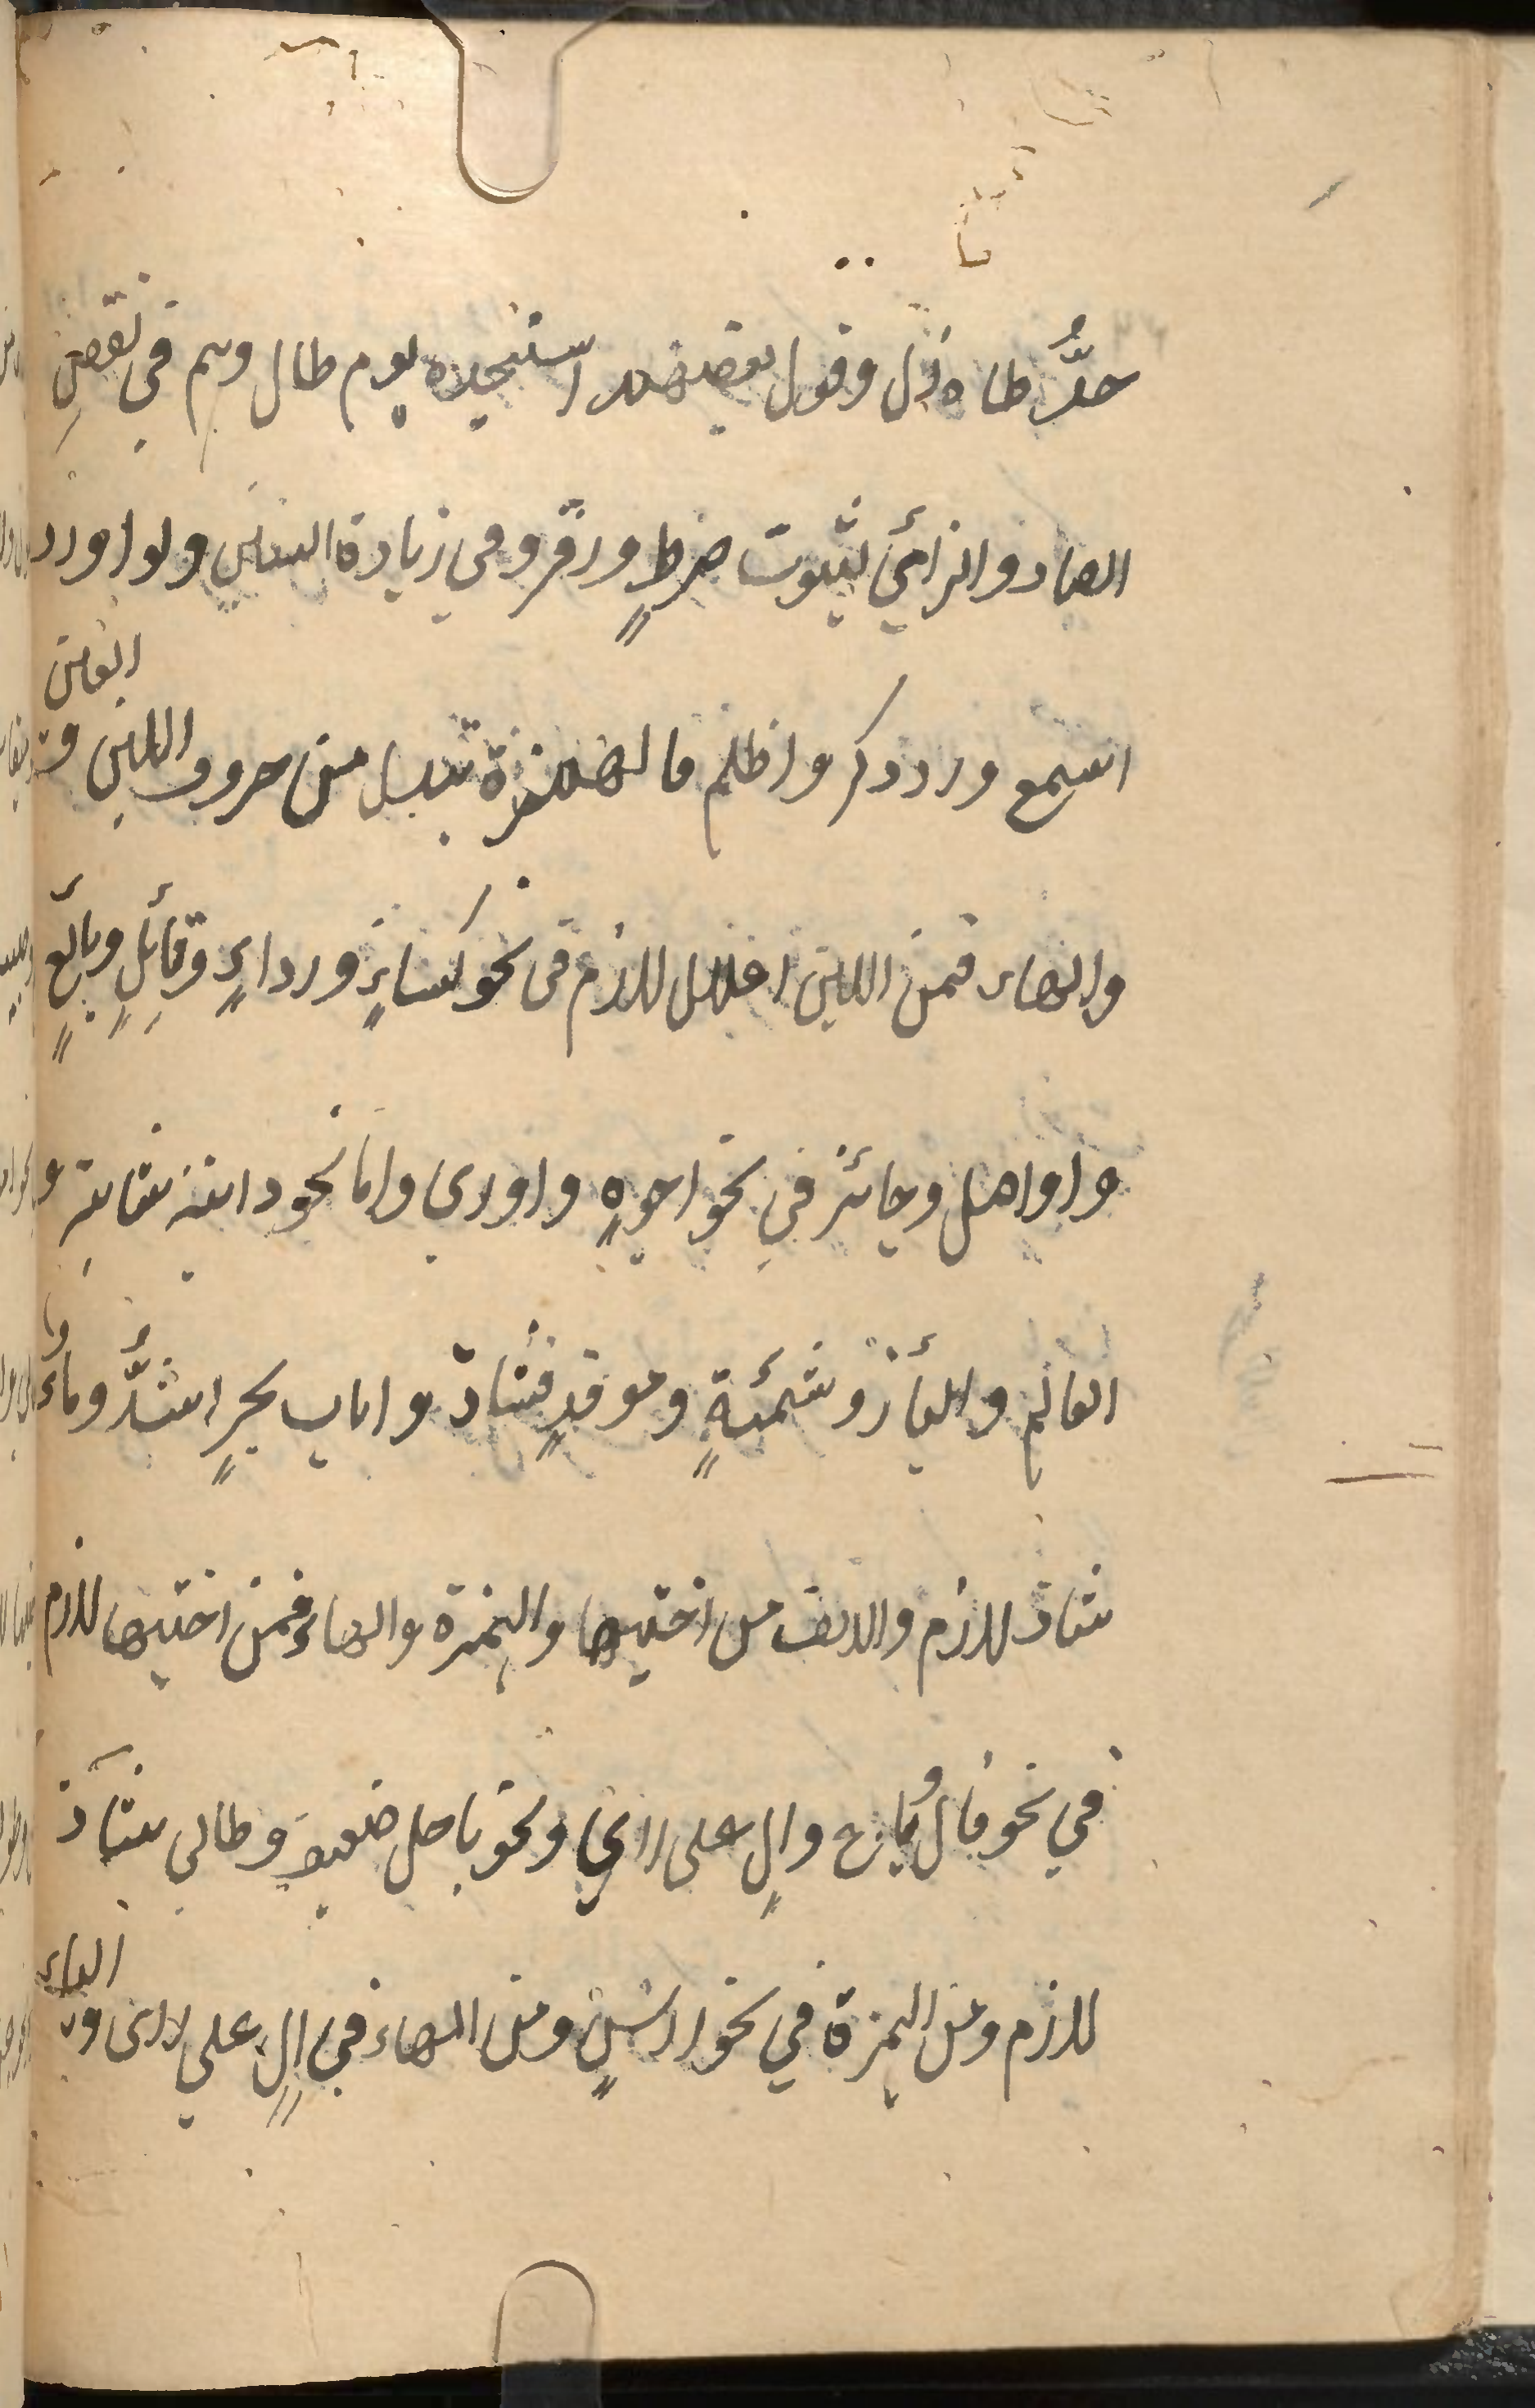 جدُّ طاه زل وقول بعضهم استنجده يوم طال وهم في نقص
الصاد والزائي لثبوت صرط وزقر وفي زيادة السين ولو اورد
اسمع ورد ذكر واظلم فالهمزة تبدل من حروف اللين و العين
والهاء فمن اللين اعلال لازم في نحو كساءٍ ورداءٍ وقائلٍ وبائعٍ
واواصل وجائز في نحو اجوهٍ واوري واما نحو دابة شابة و
العالم والبأز وشئمةٍ ومؤقدٍ فشاذ واباب بحرٍ اشذُّ وماءٌ
شاذ لازم والالف من اختيها والهمزة والهاء فمن اختيها لازم
في نحو قال وباع وآل على رأي ونحو ياجل ضعيف وطائي شاذ
لازم ومن الهمزة في نحو راسٍ ومن الهاء في الٍ على رأي و الياء